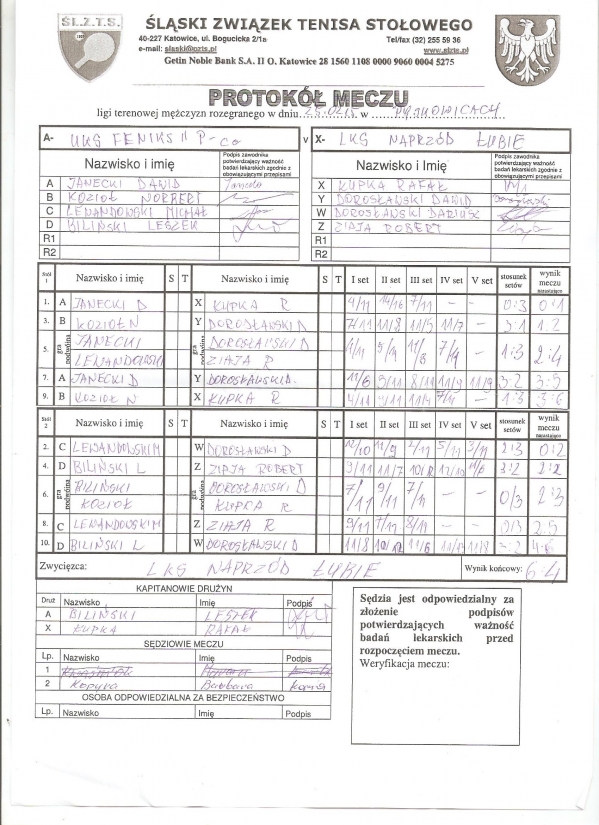 ŚL.Z.T.S.
ŚLĄSKI ZWIĄZEK TENISA STOŁOWEGO
40-227 Katowice, ul. Bogucicka 2/1a Tel/fax (32) 255 59 36
e-mail: slaski@pzts.pl www.slzts.pl
Getin Noble Bank S.A. II O. Katowice 28 1560 1108 0000 9060 0004 5275
PROTOKÓŁ MECZU
ligi terenowej mężczyzn rozegranego w dniu w
A- UKS FENIKS II P-ce v X- LKS NAPRZÓD ŁUBIE
Nazwisko i imię Podpis zawodnika potwierdzający ważność badań lekarskich zgodnie z obowiązującymi przepisami Nazwisko i Imię Podpis zawodnika potwierdzający ważność badań lekarskich zgodnie z obowiązującymi przepisami
A JANECKI DAWID X KUPKA RAFAŁ
B KOZIOŁ NORBERT Y DOROSŁAWSKI DAWID
C LEWANDOWSKI MICHAŁ W DOROSŁAWSKI DARIUSZ
D BILIŃSKI LESZEK Z ZIAJA ROBERT
R1 R1
R2 R2
Stół 1 Nazwisko i imię S T Nazwisko i imię S T I set II set III set IV set V set stosunek setów wynik meczu narastająco
1. A JANECKI D X KUPKA R 4/11 14/16 7/11 – – 0:3 0:1
3. B KOZIOŁ N Y DOROSŁAWSKI D 7/11 11/8 11/5 11/7 – 3:1 1:2
5. gra podwójna JANECKI LEWANDOWSKI gra podwójna DOROSŁAWSKI D ZIAJA R 11/8 – 1:3 2:4
7. A JANECKI D Y DOROSŁAWSKI D. 11/6 9/11 8/11 11/9 11/9 3:2 3:5
9. B KOZIOŁ N X KUPKA R 4/11 – 1:3 3:6
Stół 2 Nazwisko i imię S T Nazwisko i imię S T I set II set III set IV set V set stosunek setów wynik meczu narastająco
2. C LEWANDOWSKI M W DOROSŁAWSKI D 12/10 11/9 2/11 5/11 3/11 2:3 0:2
4. D BILIŃSKI L Z ZIAJA ROBERT 9/11 11/7 3:2 2:2
6. gra podwójna BILIŃSKI KOZIOŁ gra podwójna DOROSŁAWSKI D KUPKA R 7/11 9/11 7/11 – – 0/3 2:3
8. C LEWANDOWSKI M Z ZIAJA R 9/11 7/11 8/11 – – 0/3 2:5
10. D BILIŃSKI L W DOROSŁAWSKI D 11/8 10/12 11/6 11/8 3:2 4:6
Zwycięzca: LKS NAPRZÓD ŁUBIE Wynik końcowy: 6:4
KAPITANOWIE DRUŻYN
Druż Nazwisko Imię Podpis
A BILIŃSKI LESZEK
X KUPKA RAFAŁ
SĘDZIOWIE MECZU
Lp. Nazwisko Imię Podpis
1
2 Kopyra Barbara
OSOBA ODPOWIEDZIALNA ZA BEZPIECZEŃSTWO
Lp. Nazwisko Imię Podpis
Sędzia jest odpowiedzialny za
złożenie podpisów
potwierdzających ważność
badań lekarskich przed
rozpoczęciem meczu.
Weryfikacja meczu: